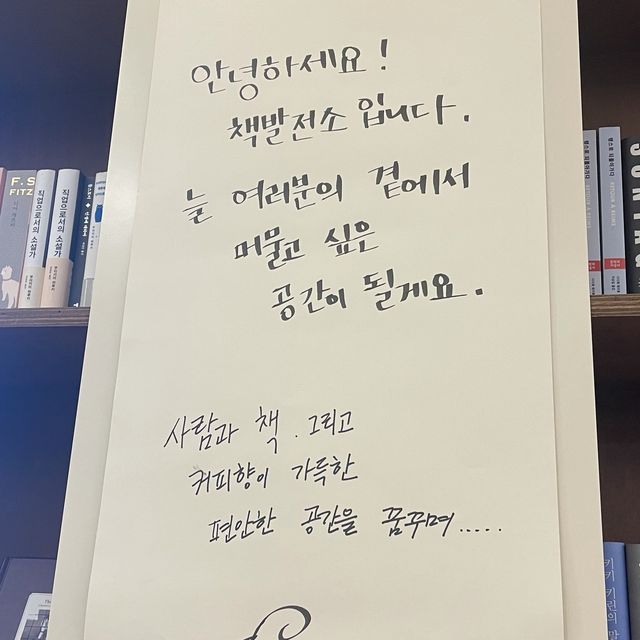 안녕하세요!
책발전소 입니다.
늘 여러분의 곁에서
머물고 싶은
공간이 될게요.
사람과 책. 그리고
커피향이 가득한
편안한 공간을 꿈꾸며.....
F. S
FITZ
직업으로서의 소설가
직업으로서의 소설가
키키 키린의 말